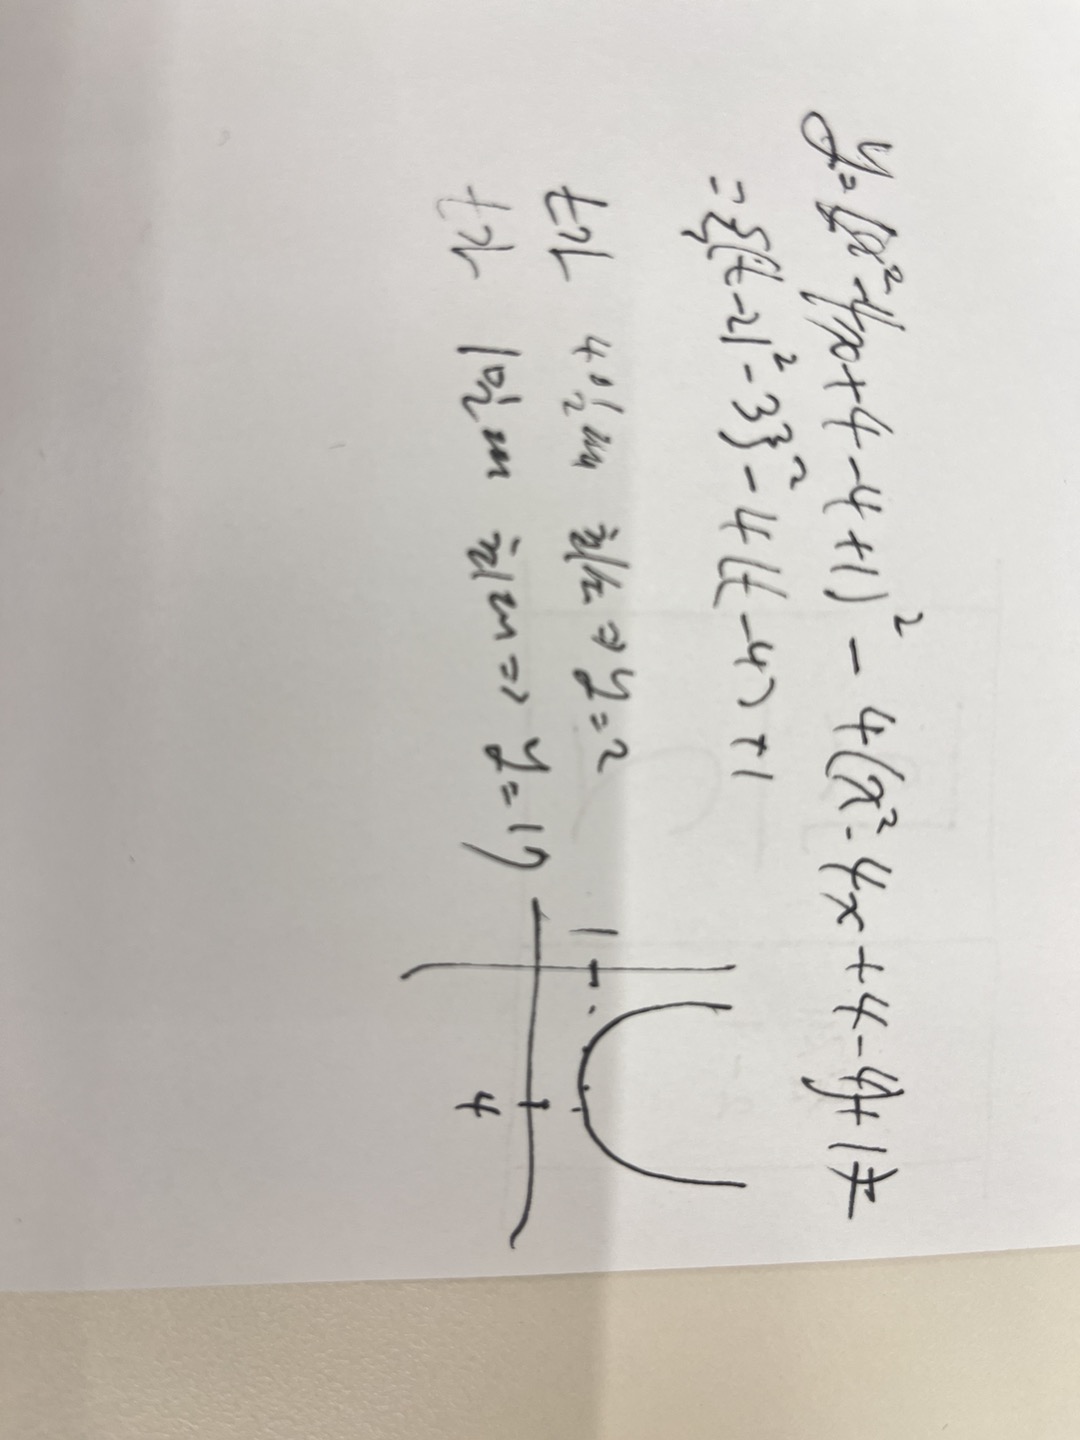 y=(x²-4x+4-4+1)²-4(x²-4x+4-4)+1=
={(t-2)²-3}²-4(t-4)+1
t가 4일때 최소⇒y=2
t가 1일때 최대⇒y=17
1
4